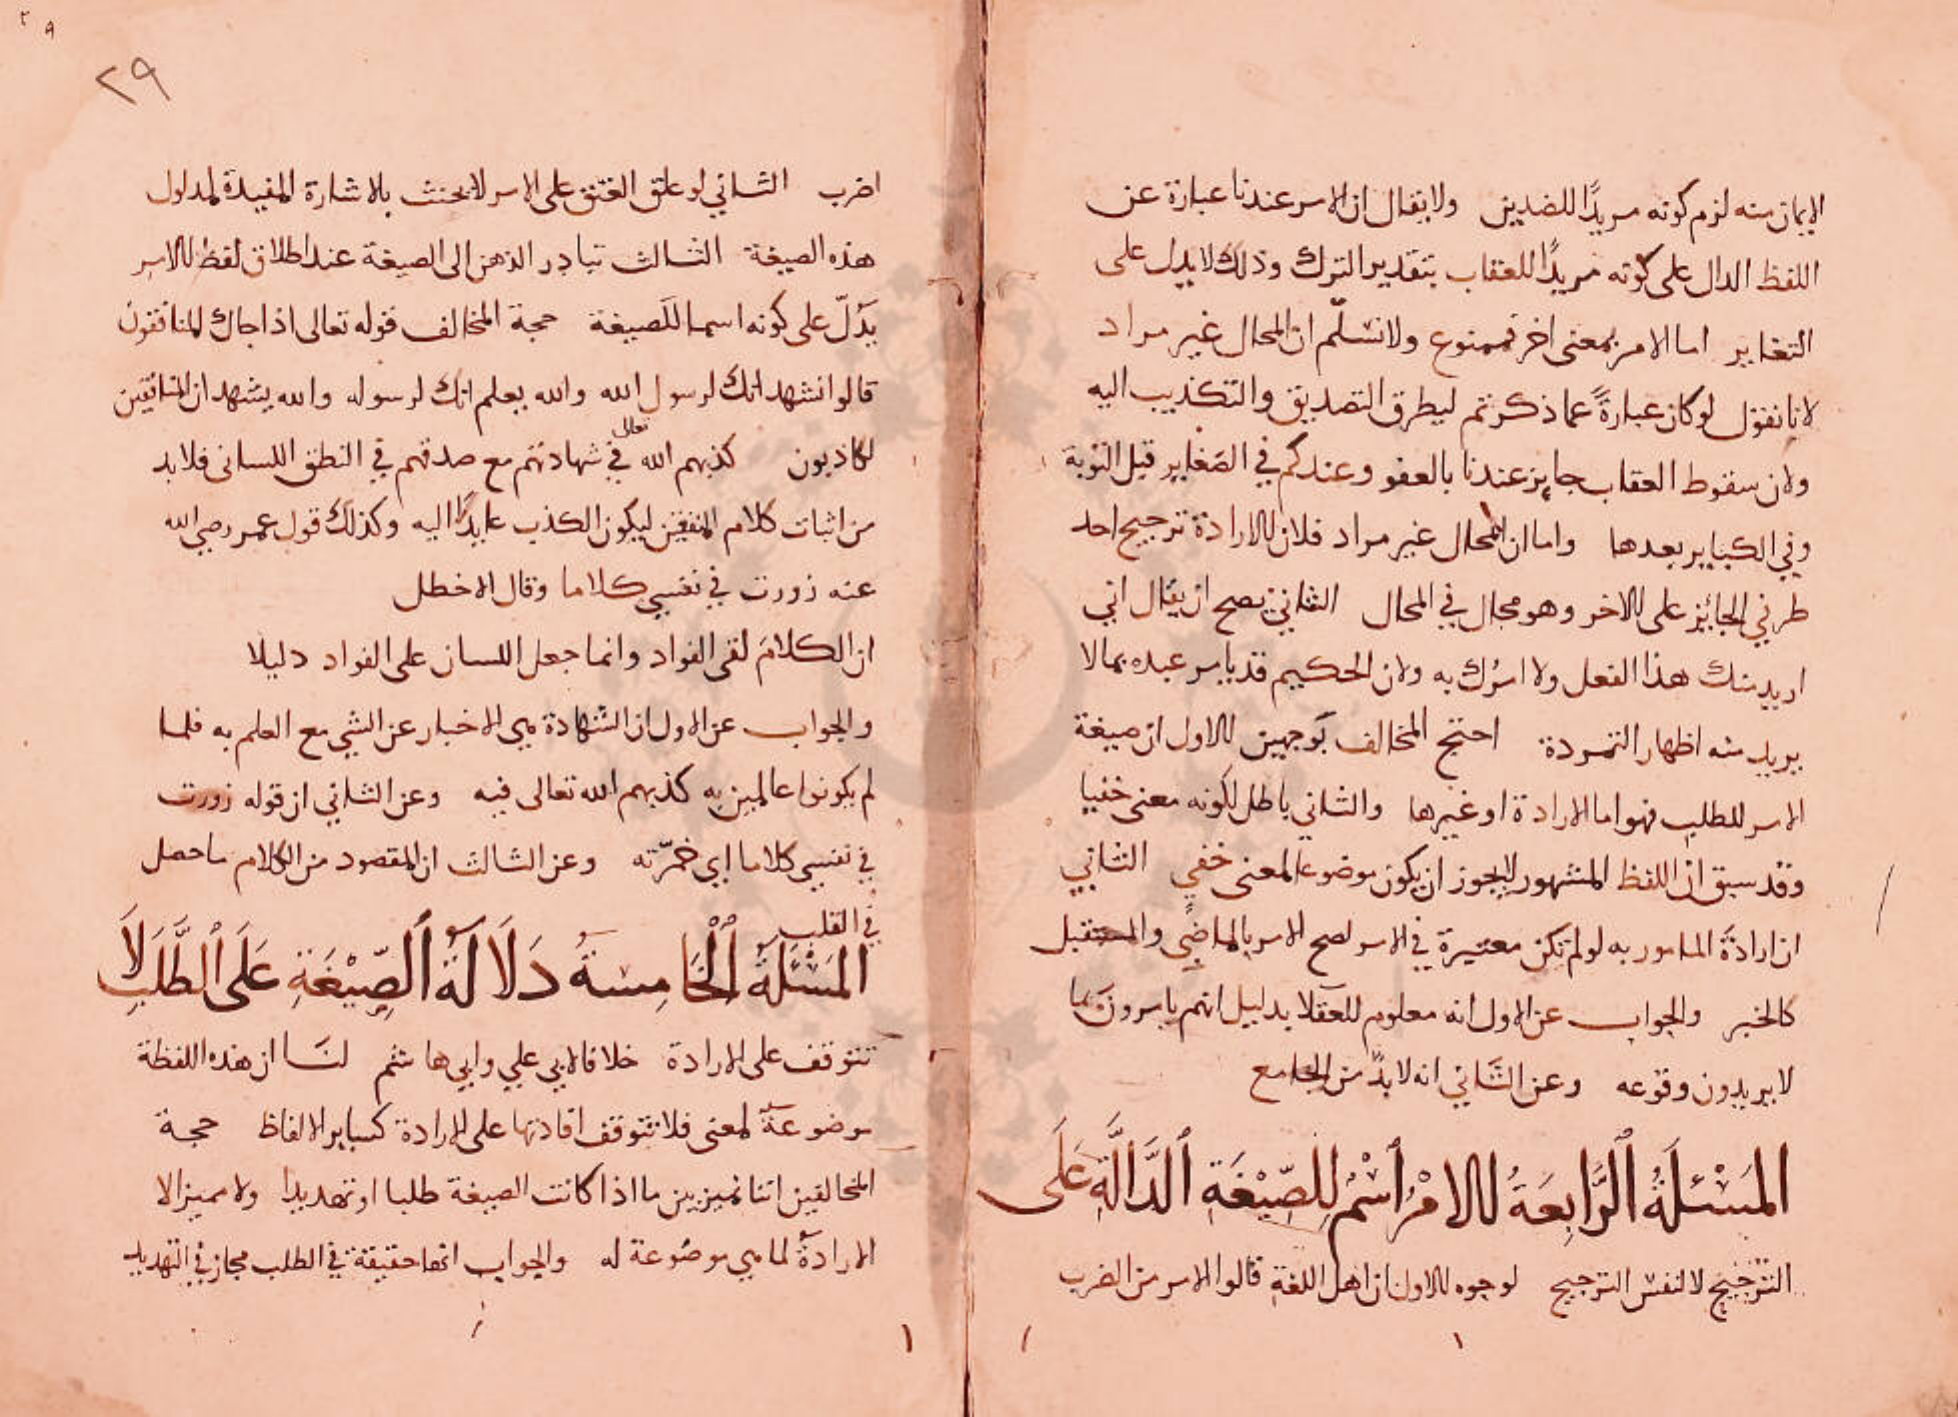 الايمان منه لزم كونه مريدًا للضدين ولا يقال ان الامر عندنا عبارة عن
اللفظ الدال على كونه مريدًا للعقاب بتقدير الترك وذلك لا يدل على
التغاير اما الامر بمعنى اخر فممنوع ولا نسلّم ان المحال غير مراد
لانا نقول لو كان عبارةً عما ذكرتم ليطرق التصديق والتكذيب اليه
ولان سقوط العقاب جايز عندنا بالعفو وعندكم في الصغاير قبل التوبة
وفي الكباير بعدها واما ان المحال غير مراد فلان الارادة ترجيح احد
طرفي الجائز على الاخر وهو محال في المحال الثاني يصح ان يقال اني
اريد منك هذا الفعل ولا امرك به ولان الحكيم قد يامر عبده بما لا
يريد منه اظهار التمرده احتج المخالف بوجهين الاول ان صيغة
الامر للطلب فهو اما الارادة او غيرها والثاني باطل لكونه معنى خفيا
وقد سبق ان اللفظ المشهور لا يجوز ان يكون موضوعا لمعنى خفي الثاني
ان ارادة المامور به لو لم تكن معتبرة في الامر لصح الامر بالماضي والمستقبل
كالخبر والجواب عن الاول انه معلوم للعقلا بدليل انهم يامرون بما
لا يريدون وقوعه وعن الثاني انه لا بدّ من الجامع
المَسْئَلَةُ الرَّابِعَةُ الامْرُ اسْمٌ لِلصِّيْغَةِ الدَّالَّةِ عَلَى
الترجيح لا لنفس الترجيح لوجوه الاول ان اهل اللغة قالوا الامر من الضرب
٢٩
اضرب الثاني لو علق العتق على الامر لا يحنث بالاشارة المفيدة لمدلول
هذه الصيغة الثالث تبادر الذهن الى الصيغة عند اطلاق لفظ الامر
يدلّ على كونه اسما للصيغة حجة المخالف قوله تعالى اذا جاك المنافقون
قالوا نشهد انك لرسول الله والله يعلم انك لرسوله والله يشهد ان المنافقين
لكاذبون كذبهم الله تعالى في شهادتهم مع صدقهم في النطق اللسانى فلا بد
من اثبات كلام النفس ليكون الكذب عايدًا اليه وكذلك قول عمر رضي الله
عنه زورت في نفسي كلاما وقال الاخطل
ان الكلام لفى الفواد وانما جعل اللسان على الفواد دليلا
والجواب عن الاول ان الشهادة هي الاخبار عن الشي مع العلم به فلما
لم يكونوا عالمين به كذبهم الله تعالى فيه وعن الثاني ان قوله زورت
في نفسي كلاما اي خمرّته وعن الثالث ان المقصود من الكلام ما حصل
في القلب
المَسْئَلَةُ الْخَامِسَةُ دَلَالَةُ الصِّيْغَةِ عَلَى الطَّلَبِ لَا
تتوقف على الارادة خلافا لابي علي وابي هاشم لنا ان هذه اللفظة
موضوعة لمعنى فلا تتوقف افادتها على الارادة كساير الالفاظ حجة
المخالفين اننا نميز بين ما اذا كانت الصيغة طلبا او تهديدا ولا مميز الا
الارادة لما هي موضوعة له والجواب انها حقيقة في الطلب مجاز في التهديد